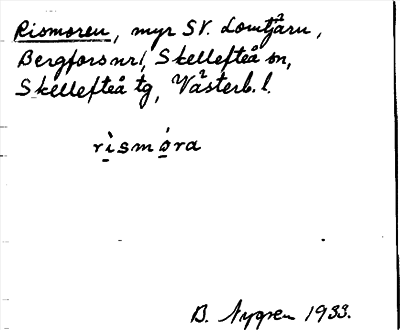 Rismoren, myr SV. Lomtjärn,
Bergfors nr 1, Skellefteå sn,
Skellefteå tg, Västerb. l.
rìsmóra
B. Nygren 1933.